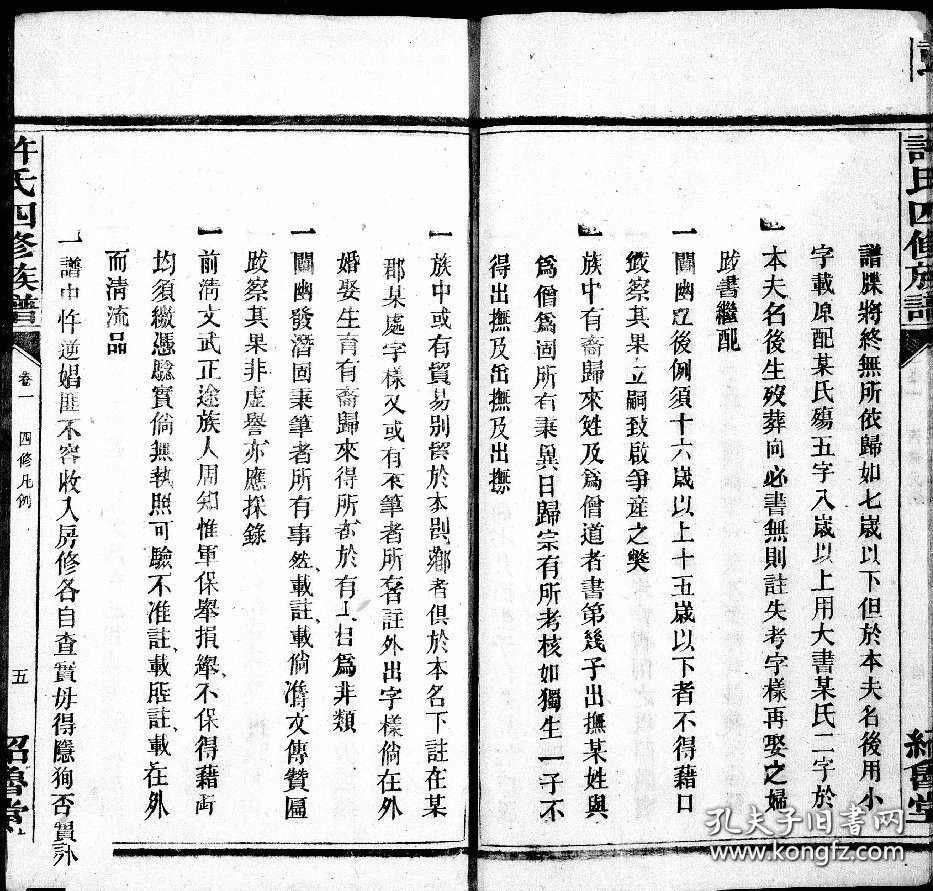 許氏四修族譜
紹魯堂
譜牒將終無所依歸如七歲以下但於本夫名後用小
字載原配某氏殤五字入歲以上用大書某氏二字於
本夫名後生歿葬向必書無則註失考字樣再娶之婦
跋書繼配
一闡幽立後例須十六歲以上十五歲以下者不得藉口
致察其果立嗣致啟爭產之獘
族中有裔歸來姓及爲僧道者書第幾子出撫某姓與
爲僧爲固所有秉異日歸宗有所考核如獨生一子不
得出撫及缶撫及出撫
一族中或有貿易別於本別鄉者俱於本名下註在某
郡某處字樣又或有不筆者所註外出字樣倘在外
婚娶生育有裔歸來得所於有爲非類
一闡幽發潛固秉筆者所有事然載註載倘准文傳贊匾
跋察其果非虛譽亦應採錄
一前淸文武正途族人周知惟軍保舉捐舉不保得藉
均須繳憑驗實倘無執照可驗不准註載註載在外
而淸流品
一譜中忤逆娼匪不容收入房修各自查實毋得隱狥否
許氏四修族譜
卷一
四修凡例
五
紹魯堂
孔夫子旧书网
www.kongfz.com